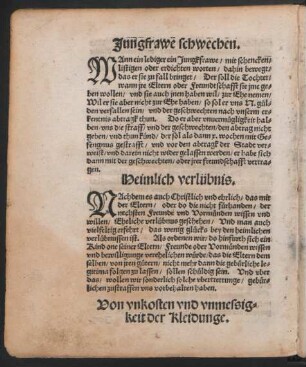 Jungfrawē schwechen.
WAnn ein lediger ein Jungkfrawe / mit schencken
listigen oder erdichten worten / dahin bewegt /
das er sie zu fall bringet / Der soll die Tochter /
wann jre Eltern oder Freundschafft sie jme ge-
ben wollen / vnd sie auch jnen haben will / zur Ehe nemen /
Wil er sie aber nicht zur Ehe haben / so sol er vns VI. gül-
den verfallen sein / vnd der geschwechten nach vnserm er-
kentnis abtragk thun. Do er aber vnuermögligkeit hal-
ben vns die straff vnd der geschwechten / den abtragk nicht
geben vnd thun künde / der sol als dann x. wochen mit Ge-
fengnus gestrafft / vnd vor den abtragk der Stadt ver-
weist / vnd darein nicht wider gelassen werden / er habe sich
dann mit der geschwechten / oder jrer freundschafft vertra-
gen.
Heimlich verlübnis.
NAchdem es auch Christlich vnd ehrlich / das mit
der Eltern / oder do die nicht fürhanden / der
nechsten Freunde vnd Vormünden wissen vnd
willen / Eheliche verlübnus geschehen / Vnd man auch
vielfeltig erfehrt / das wenig glücks bey den heimlichen
verlübnussen ist. Als ordenen wir do hinfürth sich ein
Kind one seiner Eltern / Freunde oder Vormünden wissen
vnd bewilligunge verehelichen würde / das die Eltern dem
selben / von jren gütern / nicht mehr dann die gebürliche le-
gitima folgen zu lassen / sollen schüldig sein. Vnd vber
das / wollen wir sonderlich solche vbertrettunge / gebür-
lichen zustraffen vns vorbehalten haben.
Von vnkosten vnd vnmessig-
keit der Kleidunge.